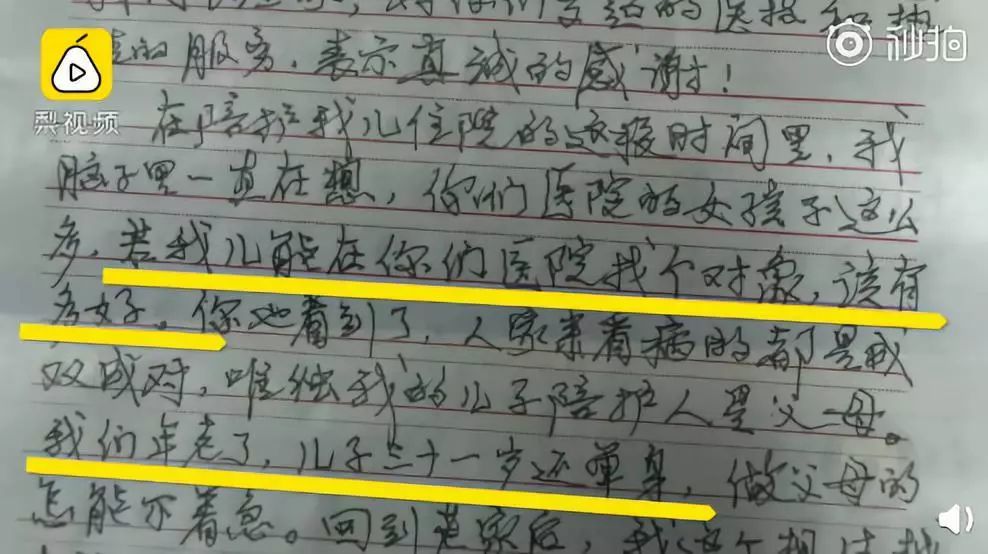 对你们高超的医技和热
情的服务，表示真诚的感谢！
在陪护我儿住院的这段时间里，我
脑子里一直在想，你们医院的女孩子这么
多，若我儿能在你们医院找个对象，该有
多好。你也看到了，人家来看病的都是成
双成对，唯独我的儿子陪护人是父母。
我们年老了，儿子三十一岁还单身，做父母的
怎能不着急。回到老家后，我这个想法
梨视频
秒拍